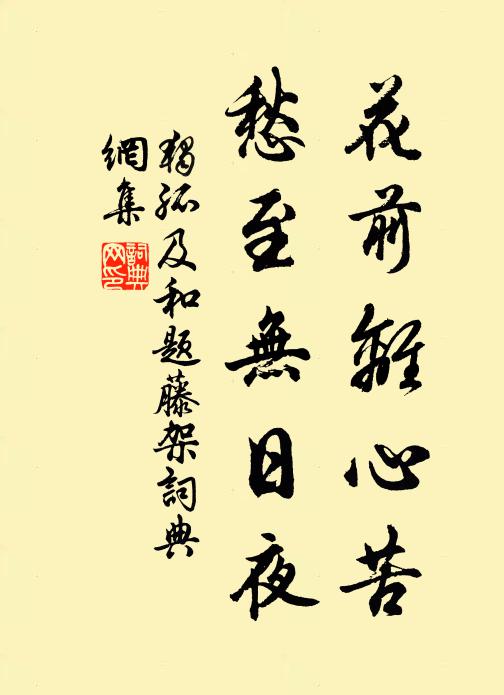 花前離心苦
愁至無日夜
獨孤及和題藤架詞典
網集
詞典
网印